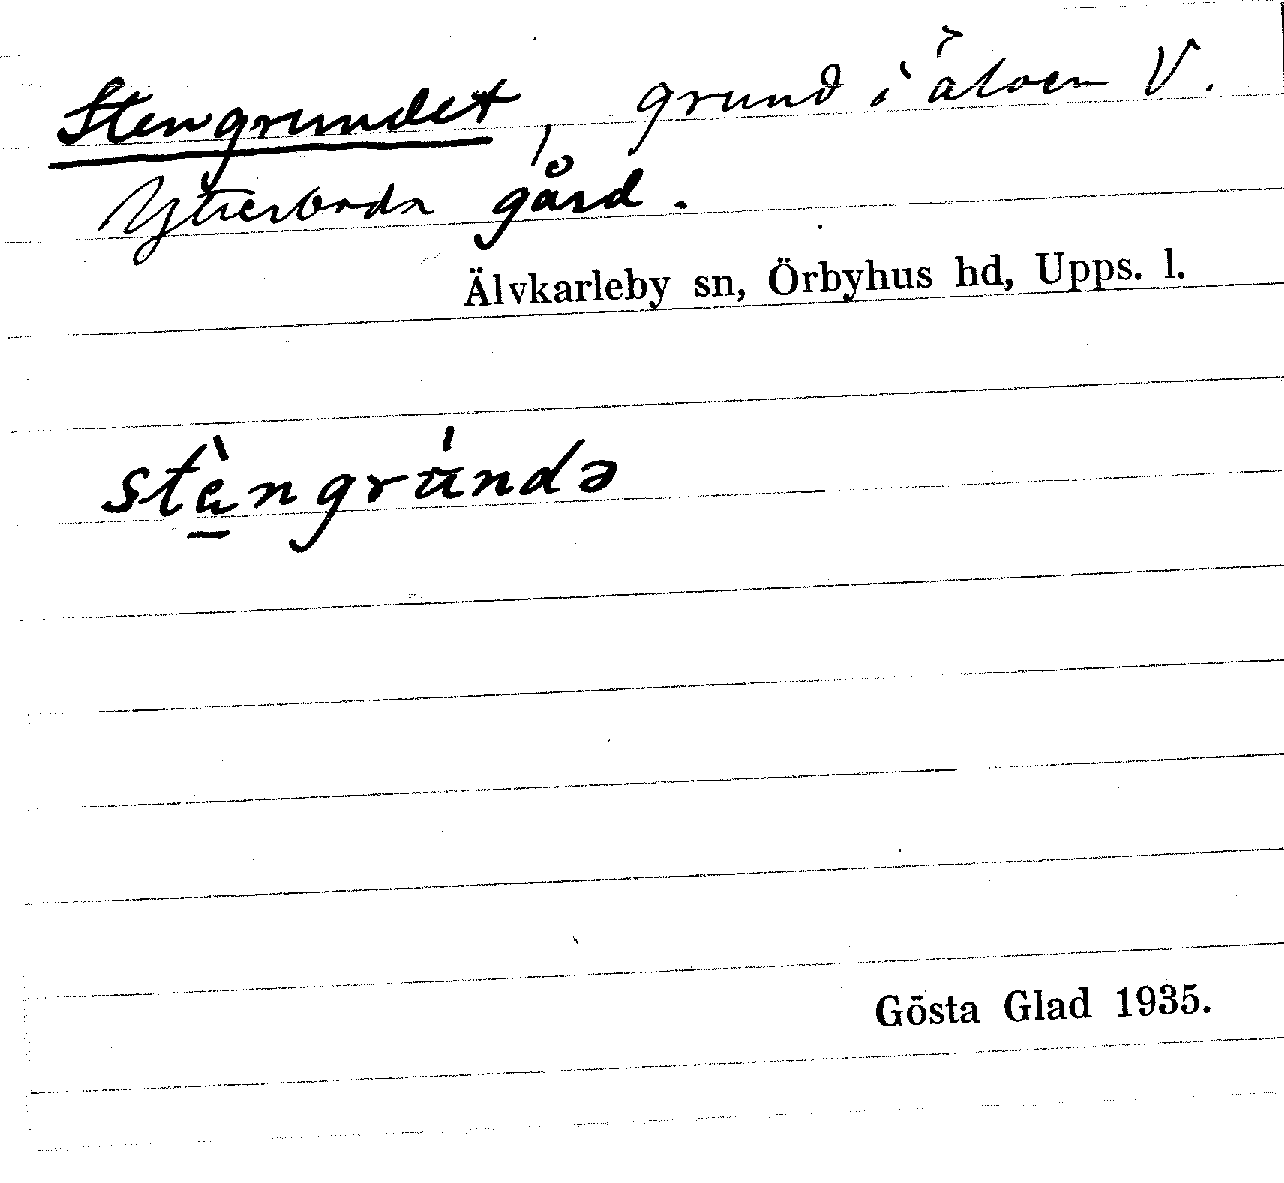 Stengrundet, grund i älven V.
Ytterboda gård.
Älvkarleby sn, Örbyhus hd, Upps. l.
stè̱ngrúndə
Gösta Glad 1935.